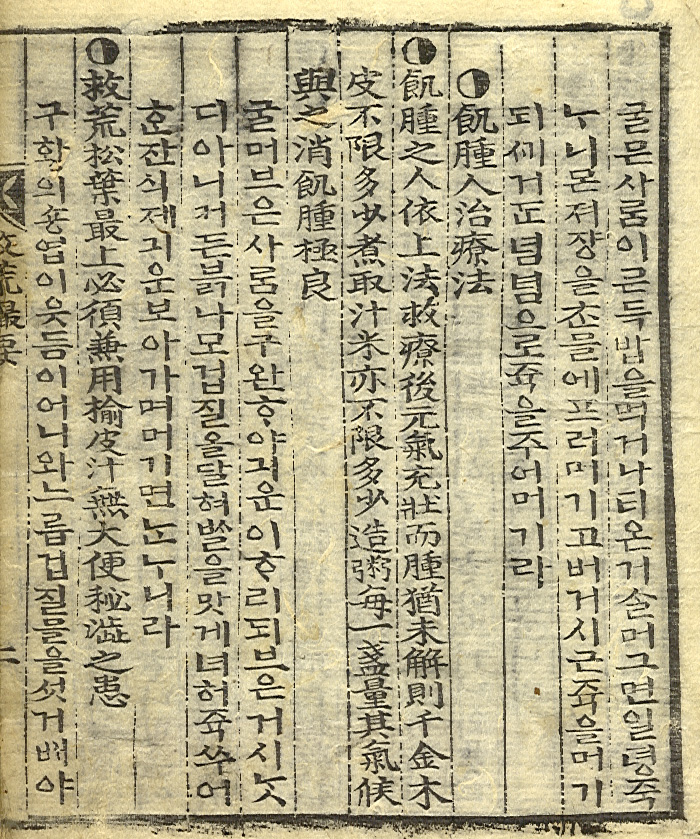 굴믄사ᄅᆞᆷ이믄득밥을먹거나더온거슬머그면일뎡죽
ᄂᆞ니몬져쟝을ᄎᆞᆫ믈에프러머기고버거시근쥭을머기
되ᄭᆡ거든념념으로쥭을주어머기라
◐飢腫人治療法
◐飢腫之人依上法救療後元氣充壯而腫猶未解則千金木
皮不限多少煮取汁米亦不限多少造粥每一盞量其氣候
與之消飢腫極良
굴머브은사ᄅᆞᆷ을구완ᄒᆞ야긔운이ᄒᆞ리되브은거시ᄂᆞᆺ
디아니커든븕나모겁질을달혀ᄡᆞᆯ을맛게녀허쥭쑤어
ᄒᆞᆫ잔식제긔운보아가며머기면ᄂᆞᆫᄂᆞ니라
◐救荒松葉最上必須兼用楡皮汁無大便秘澁之患
구황의숑엽이읏듬이어니와느릅겁질믈을섯거ᄡᅥ야
救荒撮要 二